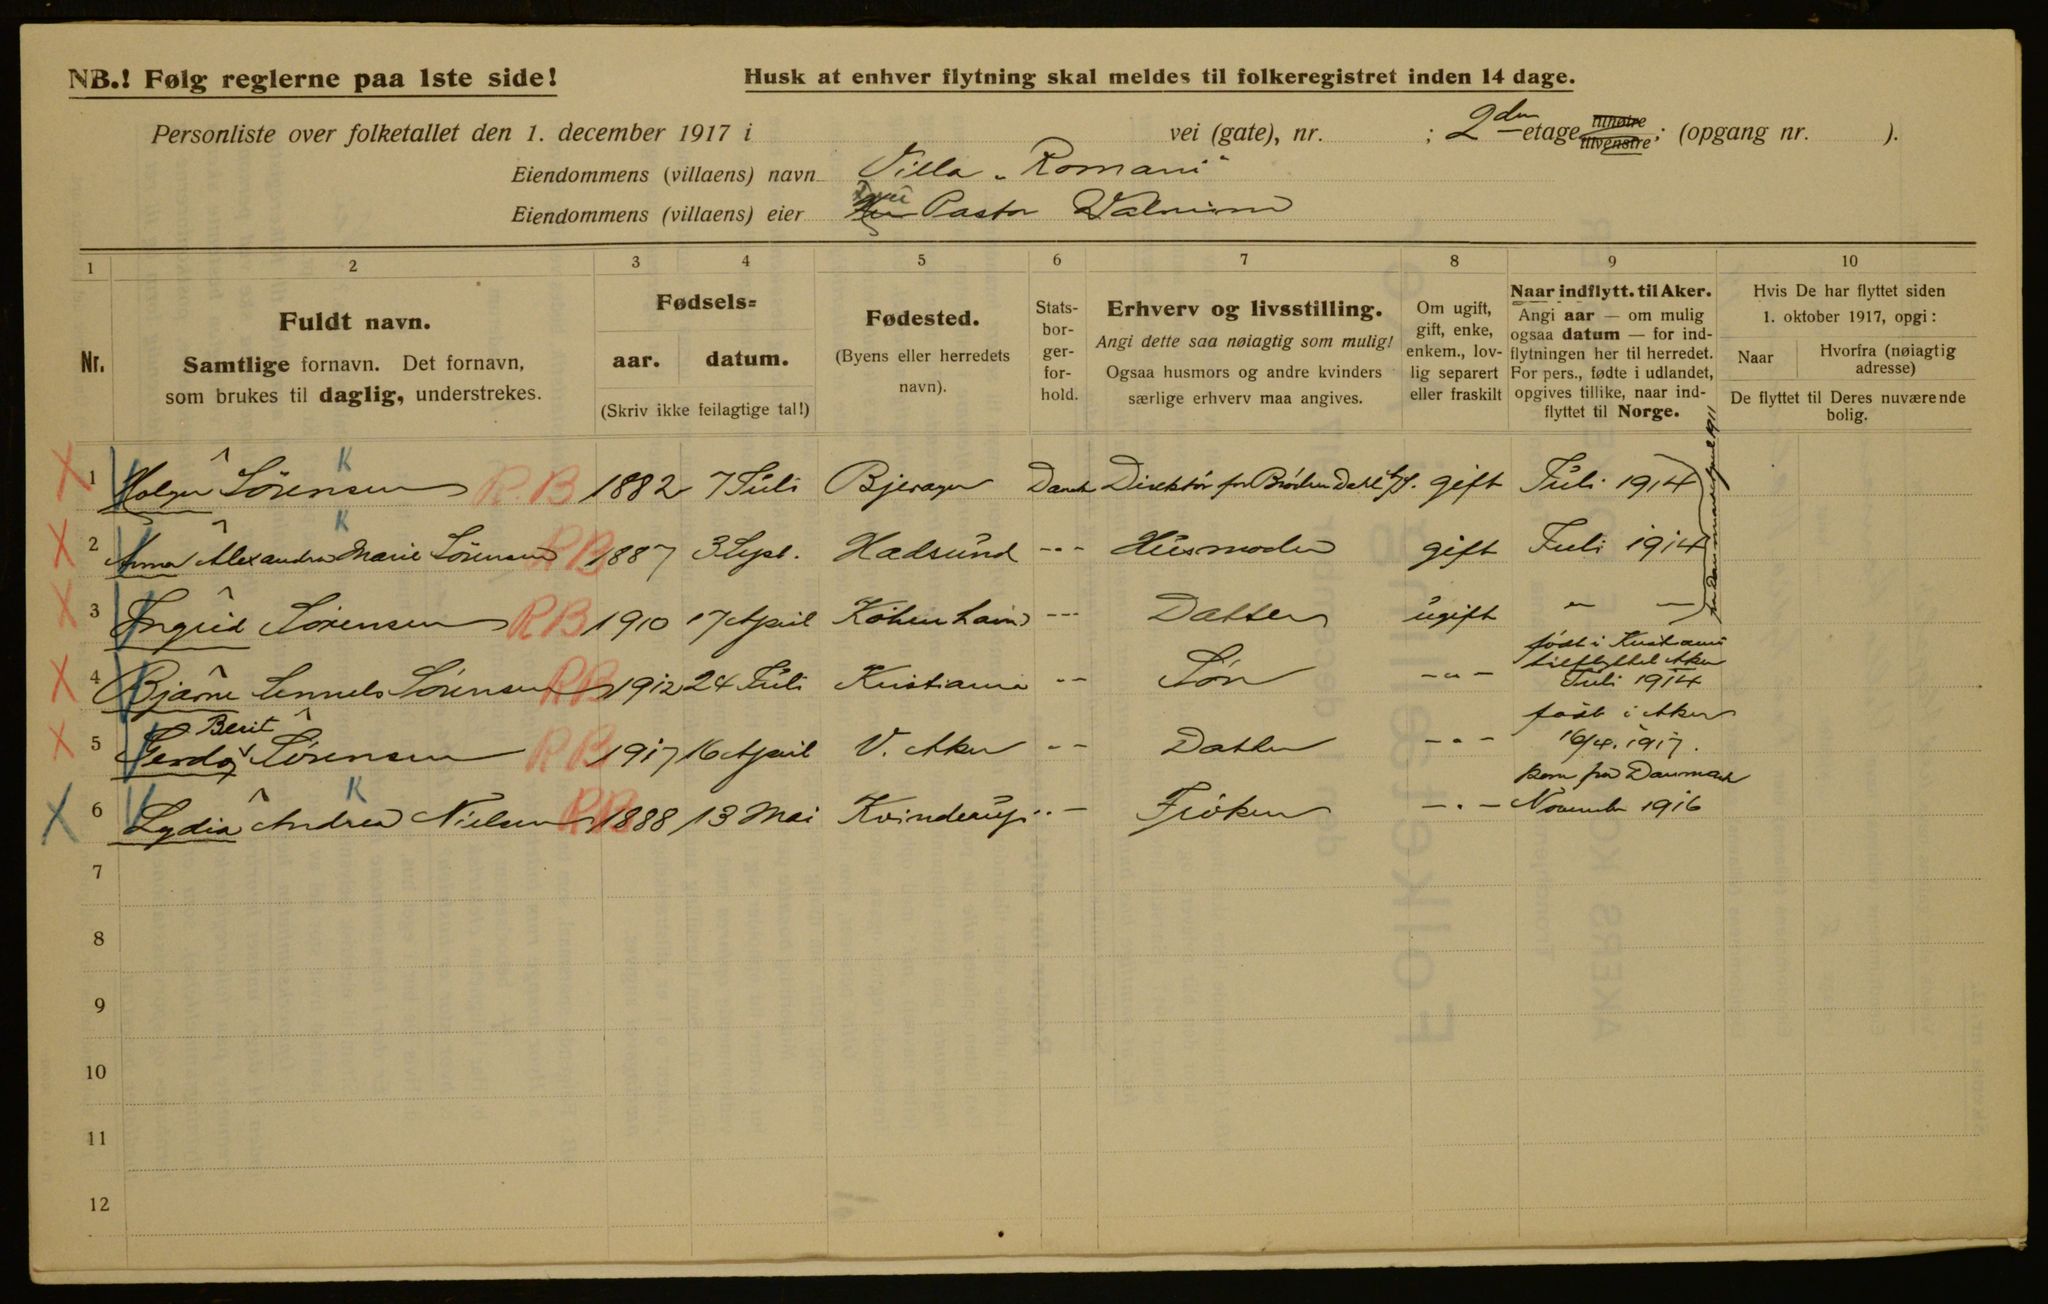 NB.! Følg reglerne paa 1ste side!
Husk at enhver flytning skal meldes til folkeregistret inden 14 dage.
Personliste over folketallet den 1. december 1917 i vei (gate), nr. ; 2den etage tilhøire tilvenstre ; (opgang nr. ).
Eiendommens (villaens) navn Villa „Romani"
Eiendommens (villaens) eier Pastor
1 2 3 4 5 6 7 8 9 10
Nr.
Fuldt navn.
Samtlige fornavn. Det fornavn,
som brukes til daglig, understrekes.
Fødsels=
aar. datum.
(Skriv ikke feilagtige tal!)
Fødested.
(Byens eller herredets
navn).
Stats-
bor-
ger-
for-
hold.
Erhverv og livsstilling.
Angi dette saa nøiagtig som mulig!
Ogsaa husmors og andre kvinders
særlige erhverv maa angives.
Om ugift,
gift, enke,
enkem., lov-
lig separert
eller fraskilt
Naar indflytt. til Aker.
Angi aar — om mulig
ogsaa datum — for ind-
flytningen her til herredet.
For pers., fødte i udlandet,
opgives tillike, naar ind-
flyttet til Norge.
Hvis De har flyttet siden
1. oktober 1917, opgi:
Naar
Hvorfra (nøiagtig
adresse)
De flyttet til Deres nuværende
bolig.
fra Danmark April 1911
K
X 1 Holger Sørensen RB 1882 7 Juli Bjerager Dansk Direktør for Brødrene Dahl A/S. gift Juli 1914
K
X 2 Anna Alexandra Marie Sørensen RB 1887 3 Sept. Hadsund -"- Husmoder gift Juli 1914
X 3 Ingrid Sørensen RB 1910 17 April Københavns --- Datter ugift " —
født i Kristiania
tilflyttet Aker
X 4 Bjarne Sørensen RB 1912 24 Juli Kristiania -- Søn -"- Juli 1914
Berit
født i Aker
X 5 Gerda Sørensen RB 1917 16 April V. Aker -- Datter -"- 16/4. 1917.
K
kom fra Danmark
X 6 Lydia Andrea Nielsen RB 1888 13 Mai Kvinderup -"- Frøken -"- November 1916
7
8
9
10
11
12